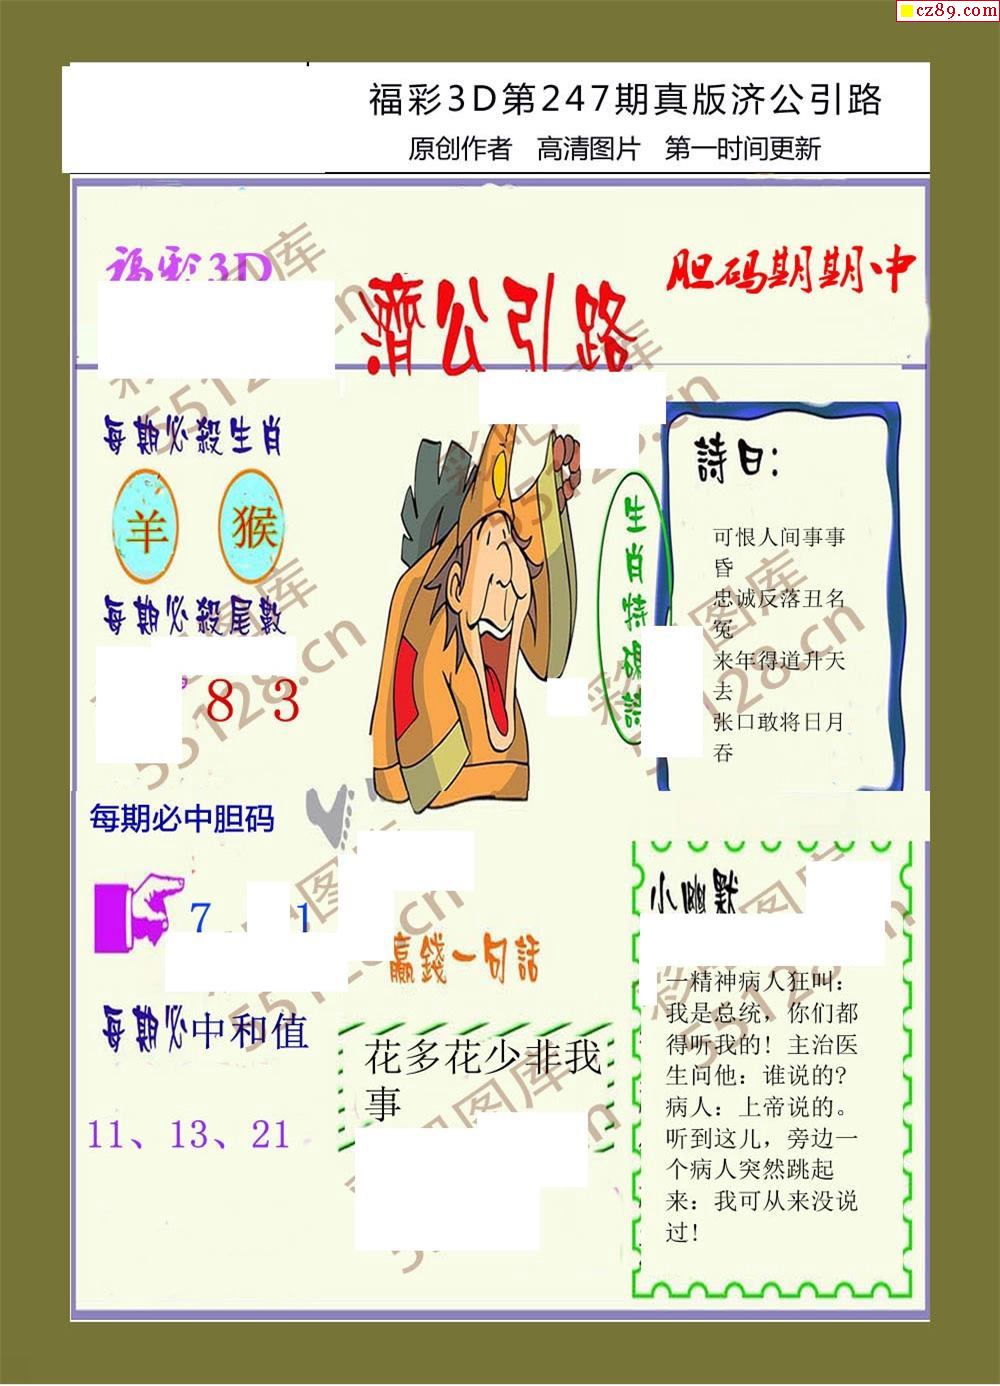 cz89.com
福彩3D第247期真版济公引路
原创作者 高清图片 第一时间更新
福彩3D
濟公引路
胆码期期中
每期必殺生肖
羊 猴
每期必殺尾數
8 3
每期必中胆码
7 1
每期必中和值
11、13、21
生肖特碼詩
詩曰：
可恨人间事事
昏
忠诚反落丑名
冤
来年得道升天
去
张口敢将日月
吞
赢錢一句話
花多花少非我
事
小幽默
一精神病人狂叫：
我是总统，你们都
得听我的！主治医
生问他：谁说的？
病人：上帝说的。
听到这儿，旁边一
个病人突然跳起
来：我可从来没说
过！
彩吧图库
55128.cn